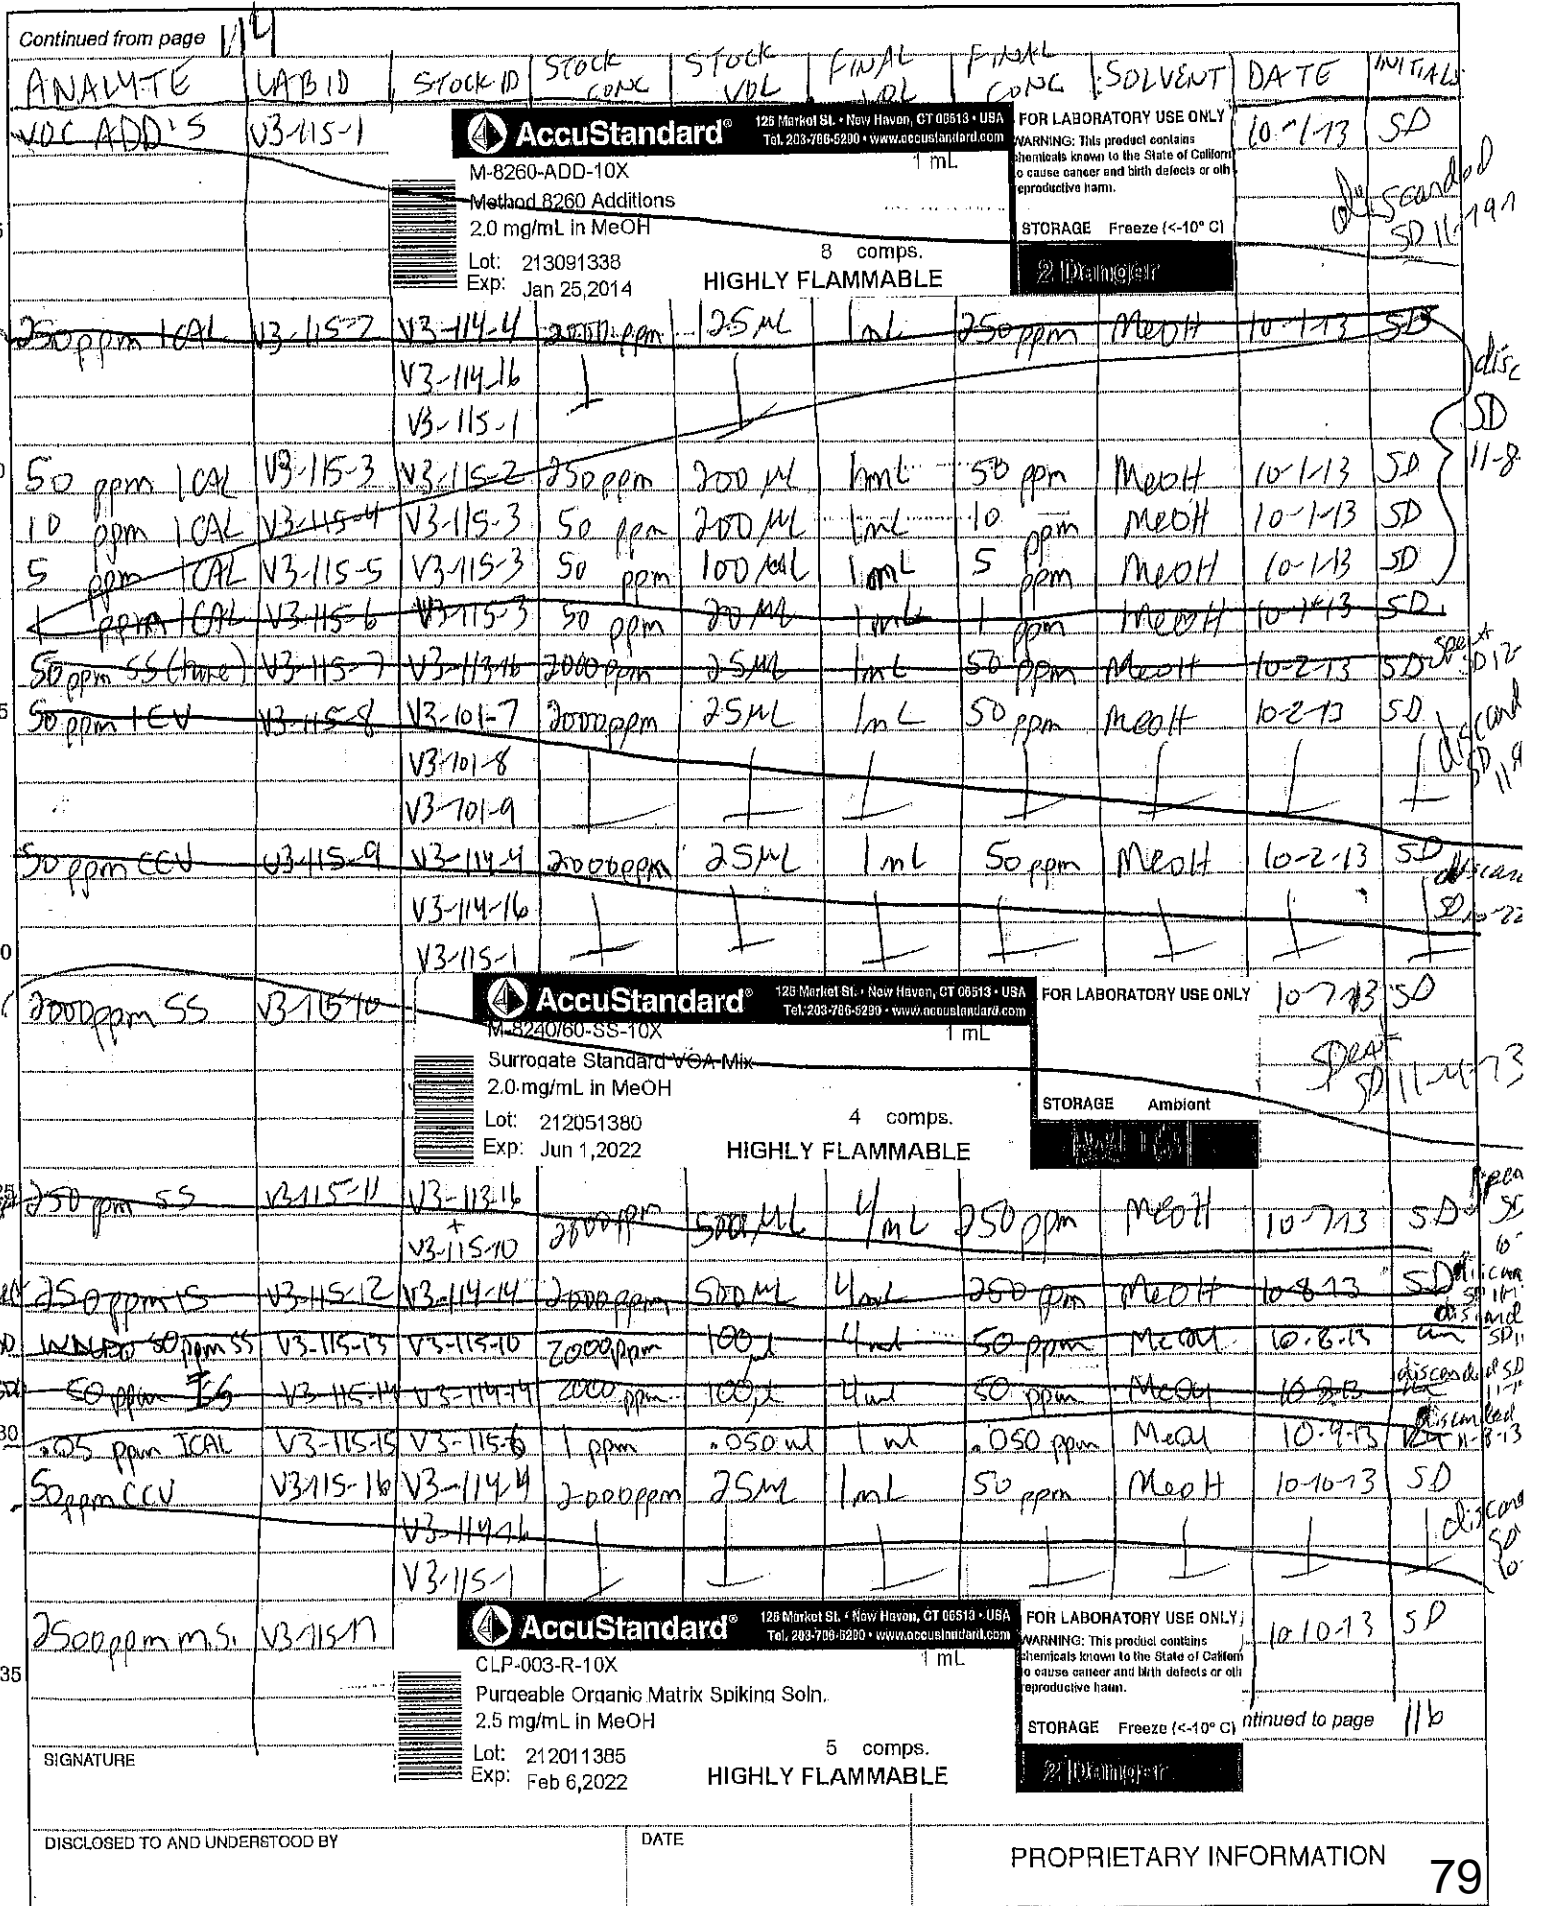 Continued from page 114
ANALYTE LAB ID STOCK ID STOCK CONC STOCK VOL FINAL VOL FINAL CONC SOLVENT DATE INITIALS
VOC ADD'S V3-115-1 10-1-13 SD
AccuStandard® 125 Market St. • New Haven, CT 06513 • USA
Tel. 203-786-5290 • www.accustandard.com
M-8260-ADD-10X 1 mL
Method 8260 Additions
2.0 mg/mL in MeOH
8 comps.
Lot: 213091338
Exp: Jan 25,2014
HIGHLY FLAMMABLE
FOR LABORATORY USE ONLY
WARNING: This product contains
chemicals known to the State of Californ
o cause cancer and birth defects or oth
eproductive harm.
STORAGE Freeze (<-10° C)
2 Danger
discarded
SD 11-191
250ppm ICAL V3-115-2 V3-114-4 2000 ppm 125 µL 1mL 250 ppm MeOH 10-1-13 SD
V3-114-16
V3-115-1
disc
SD
11-8
50 ppm ICAL V3-115-3 V3-115-2 250ppm 200 µL 1mL 50 ppm MeOH 10-1-13 SD
10 ppm ICAL V3-115-4 V3-115-3 50 ppm 200 µL 1mL 10 ppm MeOH 10-1-13 SD
5 ppm ICAL V3-115-5 V3-115-3 50 ppm 100 µL 1mL 5 ppm MeOH 10-1-13 SD
1 ppm ICAL V3-115-6 V3-115-3 50 ppm 20 µL 1mL 1 ppm MeOH 10-1-13 SD
50 ppm SS (tune) V3-115-7 V3-113-16 2000ppm 25µL 1mL 50 ppm MeOH 10-2-13 SD spent SD 12-
50 ppm ICV V3-115-8 V3-101-7 2000ppm 25µL 1mL 50 ppm MeOH 10-2-13 SD
V3-101-8
V3-101-9
discard
SD
50 ppm CCV V3-115-9 V3-114-4 2000ppm 25µL 1mL 50 ppm MeOH 10-2-13 SD
V3-114-16
V3-115-1
discar
SD 10-22
2000ppm SS V3-115-10 10-7-13 SD
AccuStandard® 125 Market St. • New Haven, CT 06513 • USA
Tel. 203-786-5290 • www.accustandard.com
M-8240/60-SS-10X 1 mL
Surrogate Standard VOA Mix
2.0 mg/mL in MeOH
4 comps.
Lot: 212051380
Exp: Jun 1,2022
HIGHLY FLAMMABLE
FOR LABORATORY USE ONLY
STORAGE Ambient
spent
SD 11-4-13
250 ppm SS V3-115-11 V3-113-16 + V3-115-10 2000ppm 500µL 4mL 250 ppm MeOH 10-7-13 SD
250ppm IS V3-115-12 V3-114-14 2000ppm 500µL 4mL 250 ppm MeOH 10-8-13 SD
50ppm SS V3-115-13 V3-115-10 2000ppm 100µl 4ml 50 ppm MeOH 10-8-13
50 ppm IS V3-115-14 V3-114-14 2000 ppm 100µl 4ml 50 ppm MeOH 10-8-13 discarded SD
30
.05 ppm ICAL V3-115-15 V3-115-6 1 ppm .050 ml 1 ml .050 ppm MeOH 10-9-13 discarded 11-8-13
50ppm CCV V3-115-16 V3-114-4 2000ppm 25µL 1mL 50 ppm MeOH 10-10-13 SD
V3-114-16
V3-115-1
discard
SD
10-
2500ppm m.s. V3-115-17 10-10-13 SD
35
AccuStandard® 125 Market St. • New Haven, CT 06513 • USA
Tel. 203-786-5290 • www.accustandard.com
CLP-003-R-10X 1 mL
Purgeable Organic Matrix Spiking Soln.
2.5 mg/mL in MeOH
5 comps.
Lot: 212011385
Exp: Feb 6,2022
HIGHLY FLAMMABLE
FOR LABORATORY USE ONLY
WARNING: This product contains
chemicals known to the State of Californ
o cause cancer and birth defects or oth
eproductive harm.
STORAGE Freeze (<-10° C)
2 Danger
ntinued to page 116
SIGNATURE
DISCLOSED TO AND UNDERSTOOD BY DATE PROPRIETARY INFORMATION
79